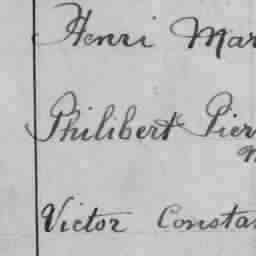 Henri Mar
Philibert Pier
Victor Constan